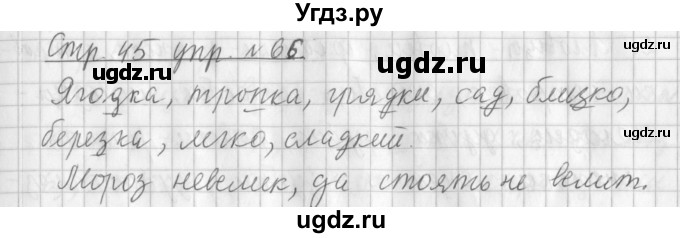 Угдз.ру
Стр. 45 упр. №66.
ugdz.ru
ugdz.ru
Ягодка, тропка, грядки, сад, близко,
ugdz.ru
березка, легко, сладкий.
ugdz.ru
Мороз невелик, да стоять не велит.
ugdz.ru
ugdz.ru